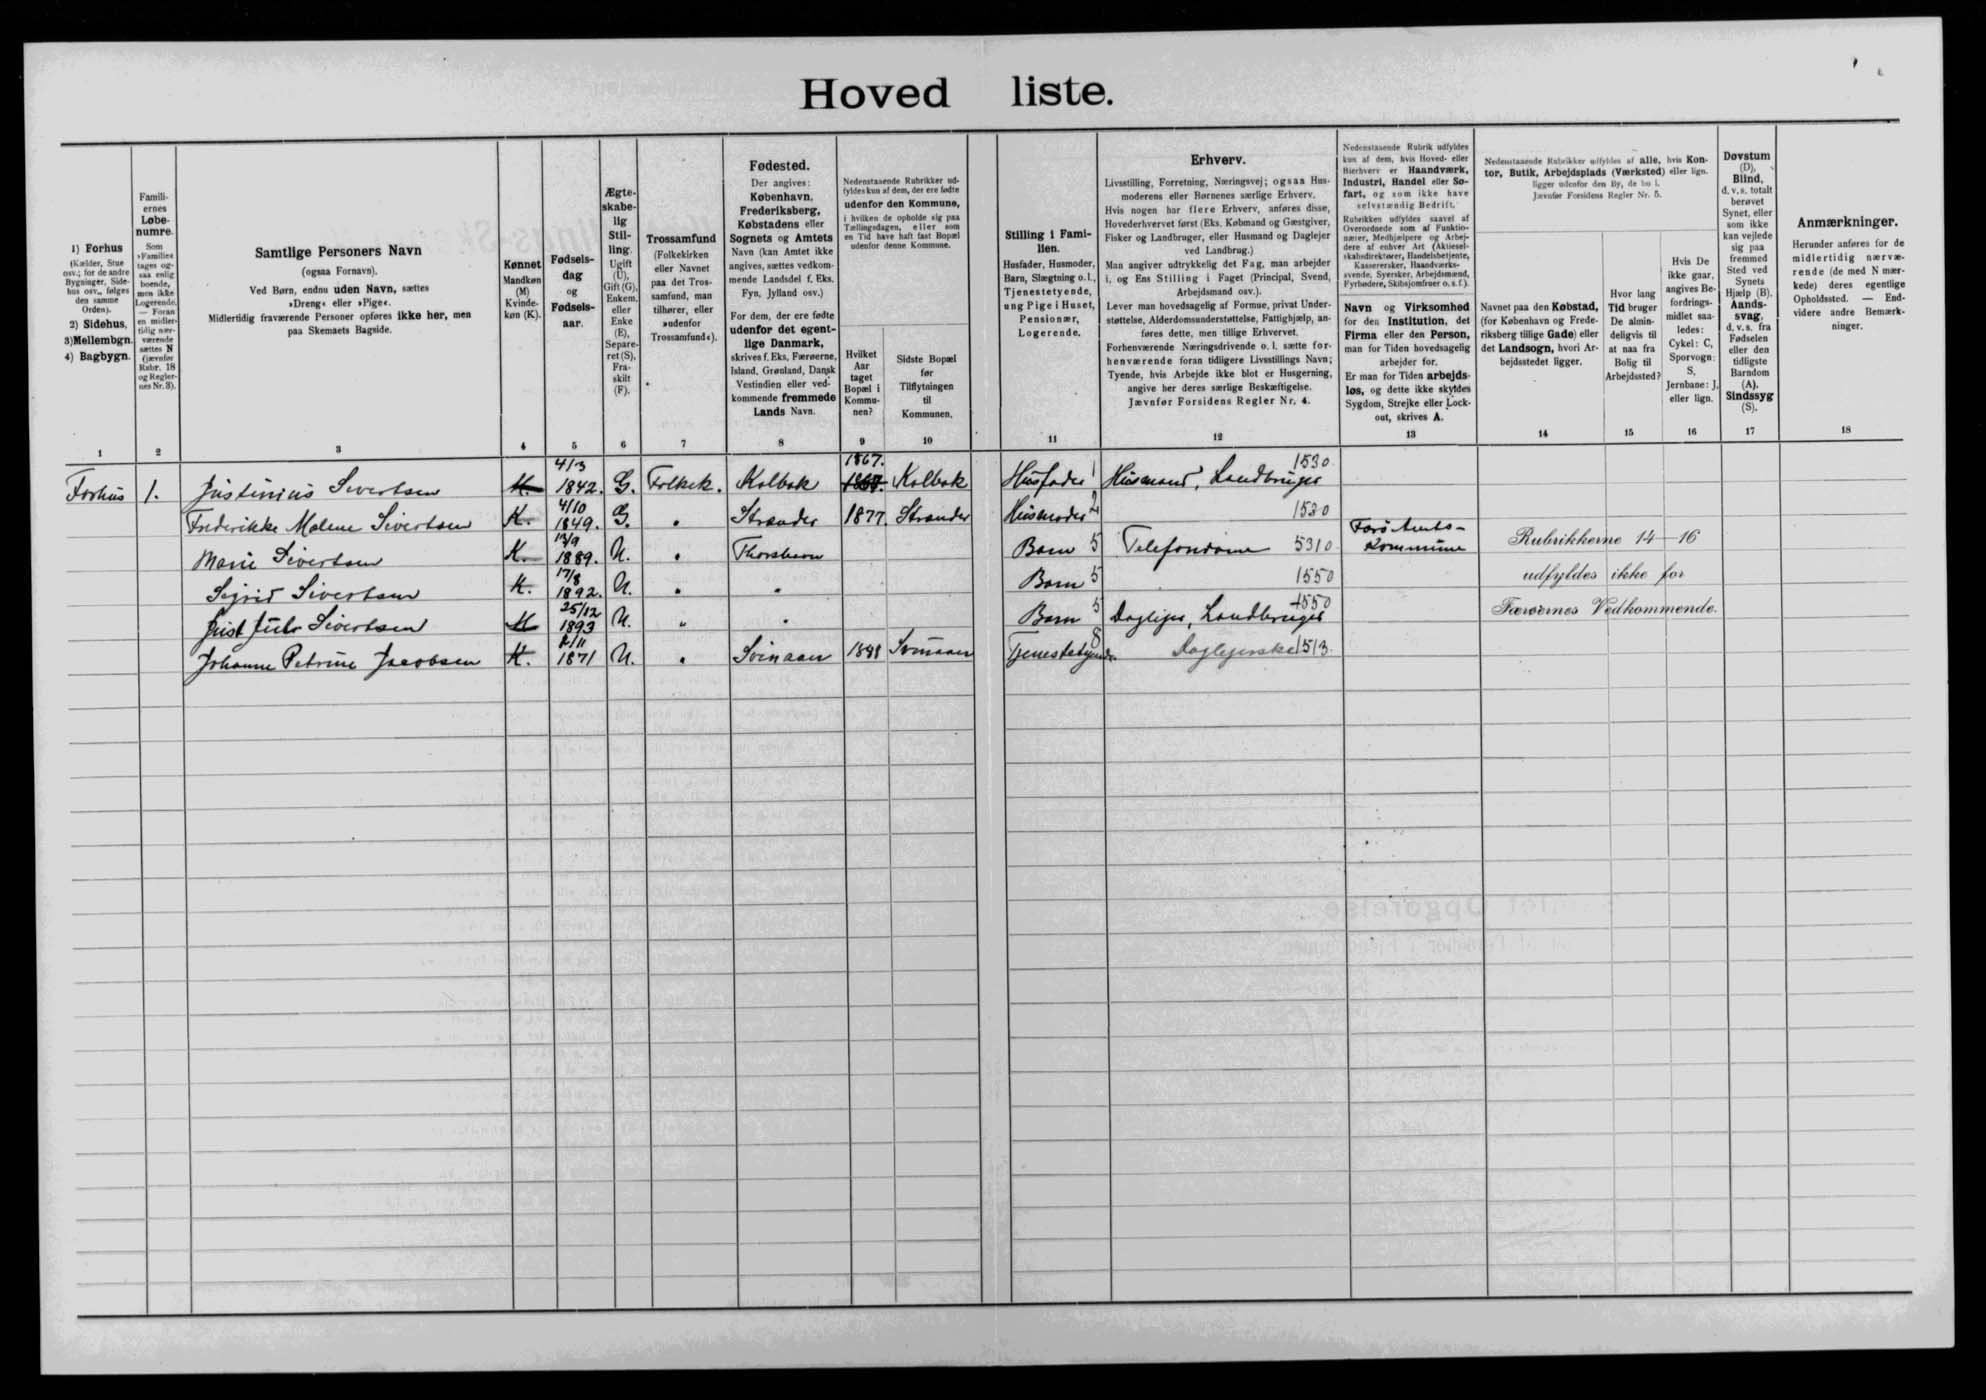 Hoved liste.
1) Forhus
(Kælder, Stue
osv.; for de andre
Bygninger, Side-
hus osv., følges
den samme
Orden).
2) Sidehus,
3) Mellembgn.
4) Bagbygn.
1
Famili-
ernes
Løbe-
numre.
Som
»Familie«
tages og-
saa enlig
boende,
men ikke
Logerende.
— Foran
en midler-
tidig nær-
værende
sættes N
(jævnfør
Rubr. 18
og Regler-
nes Nr. 3).
2
Samtlige Personers Navn
(ogsaa Fornavn).
Ved Børn, endnu uden Navn, sættes
»Dreng« eller »Pige«.
Midlertidig fraværende Personer opføres ikke her, men
paa Skemaets Bagside.
3
Kønnet
Mandkøn
(M)
Kvinde-
køn (K).
4
Fødsels-
dag
og
Fødsels-
aar.
5
Ægte-
skabe-
lig
Stil-
ling.
Ugift
(U),
Gift (G),
Enkem.
eller
Enke
(E),
Separe-
ret (S),
Fra-
skilt
(F).
6
Trossamfund
(Folkekirken
eller Navnet
paa det Tros-
samfund, man
tilhører, eller
»udenfor
Trossamfund«).
7
Fødested.
Der angives:
København,
Frederiksberg,
Købstadens eller
Sognets og Amtets
Navn (kan Amtet ikke
angives, sættes vedkom-
mende Landsdel f. Eks.
Fyn, Jylland osv.)
For dem, der ere fødte
udenfor det egent-
lige Danmark,
skrives f. Eks. Færøerne,
Island, Grønland, Dansk
Vestindien eller ved-
kommende fremmede
Lands Navn.
8
Nedenstaaende Rubrikker ud-
fyldes kun af dem, der ere fødte
udenfor den Kommune,
i hvilken de opholde sig paa
Tællingsdagen, eller som
en Tid have haft fast Bopæl
udenfor denne Kommune.
Hvilket
Aar
taget
Bopæl i
Kommu-
nen?
9
Sidste Bopæl
før
Tilflytningen
til
Kommunen.
10
Stilling i Fami-
lien.
Husfader, Husmoder,
Barn, Slægtning o.l.,
Tjenestetyende,
ung Pige i Huset,
Pensionær,
Logerende.
11
Erhverv.
Livsstilling, Forretning, Næringsvej; ogsaa Hus-
moderens eller Børnenes særlige Erhverv.
Hvis nogen har flere Erhverv, anføres disse,
Hovederhvervet først (Eks. Købmand og Gæstgiver,
Fisker og Landbruger, eller Husmand og Daglejer
ved Landbrug.)
Man angiver udtrykkelig det Fag, man arbejder
i, og Ens Stilling i Faget (Principal, Svend,
Arbejdsmand osv.).
Lever man hovedsagelig af Formue, privat Under-
støttelse, Alderdomsunderstøttelse, Fattighjælp, an-
føres dette, men tillige Erhvervet.
Forhenværende Næringsdrivende o. l. sætte for-
henværende foran tidligere Livsstillings Navn;
Tyende, hvis Arbejde ikke blot er Husgerning,
angive her deres særlige Beskæftigelse.
Jævnfør Forsidens Regler Nr. 4.
12
Nedenstaaende Rubrik udfyldes
kun af dem, hvis Hoved- eller
Bierhverv er Haandværk,
Industri, Handel eller Sø-
fart, og som ikke have
selvstændig Bedrift.
Rubrikken udfyldes saavel af
Overordnede som af Funktio-
nærer, Medhjælpere og Arbej-
dere af enhver Art (Aktiesel-
skabsdirektører, Handelsbetjente,
Kassererske, Haandværks-
svende, Syersker, Arbejdsmænd,
Fyrbødere, Skibsjomfruer o. s. f.).
Navn og Virksomhed
for den Institution, det
Firma eller den Person,
man for Tiden hovedsagelig
arbejder for.
Er man for Tiden arbejds-
løs, og dette ikke skyldes
Sygdom, Strejke eller Lock-
out, skrives A.
13
Nedenstaaende Rubrikker udfyldes af alle, hvis Kon-
tor, Butik, Arbejdsplads (Værksted) eller lign.
ligger udenfor den By, de bo i.
Jævnfør Forsidens Regler Nr. 5.
Navnet paa den Købstad,
(for København og Frede-
riksberg tillige Gade) eller
det Landsogn, hvori Ar-
bejdsstedet ligger.
14
Hvor lang
Tid bruger
De almin-
deligvis til
at naa fra
Bolig til
Arbejdssted?
15
Hvis De
ikke gaar,
angives Be-
fordrings-
midlet saa-
ledes:
Cykel: C,
Sporvogn:
S,
Jernbane: J,
eller lign.
16
Døvstum
(D),
Blind,
d. v. s. totalt
berøvet
Synet, eller
som ikke
kan vejlede
sig paa
fremmed
Sted ved
Synets
Hjælp (B).
Aands-
svag,
d. v. s. fra
Fødselen
eller den
tidligste
Barndom
(A).
Sindssyg
(S).
17
Anmærkninger.
Herunder anføres for de
midlertidig nærvæ-
rende (de med N mær-
kede) deres egentlige
Opholdssted. — End-
videre andre Bemærk-
ninger.
18
Forhus 1. Justinius Sivertsen M. 4/3 1842. G. Folkek. Kolbak 1867. 1868. Kolbak Husfader 1 Husmand, Landbruger 1530
Frederikke Malene Sivertsen K. 4/10 1849. G. " Strænder 1877. Strænder Husmoder 2 1520
Marie Sivertsen K. 13/9 1889. U. " Thorshavn Barn 5 Telefondame 5310 Færø Amts-Kommune Rubrikkerne 14—16
Sigrid Sivertsen K. 17/8 1892. U. " " Barn 5 1550 udfyldes ikke for
Just Juul Sivertsen M 25/12 1893 U. " " Barn 5 Daglejer, Landbruger 4550 Færøernes Vedkommende.
Johanne Petrine Jacobsen K. 2/11 1871 U. " Svinaaer 1898 Svinaaer Tjenestetyende 8 Daglejerske 1513